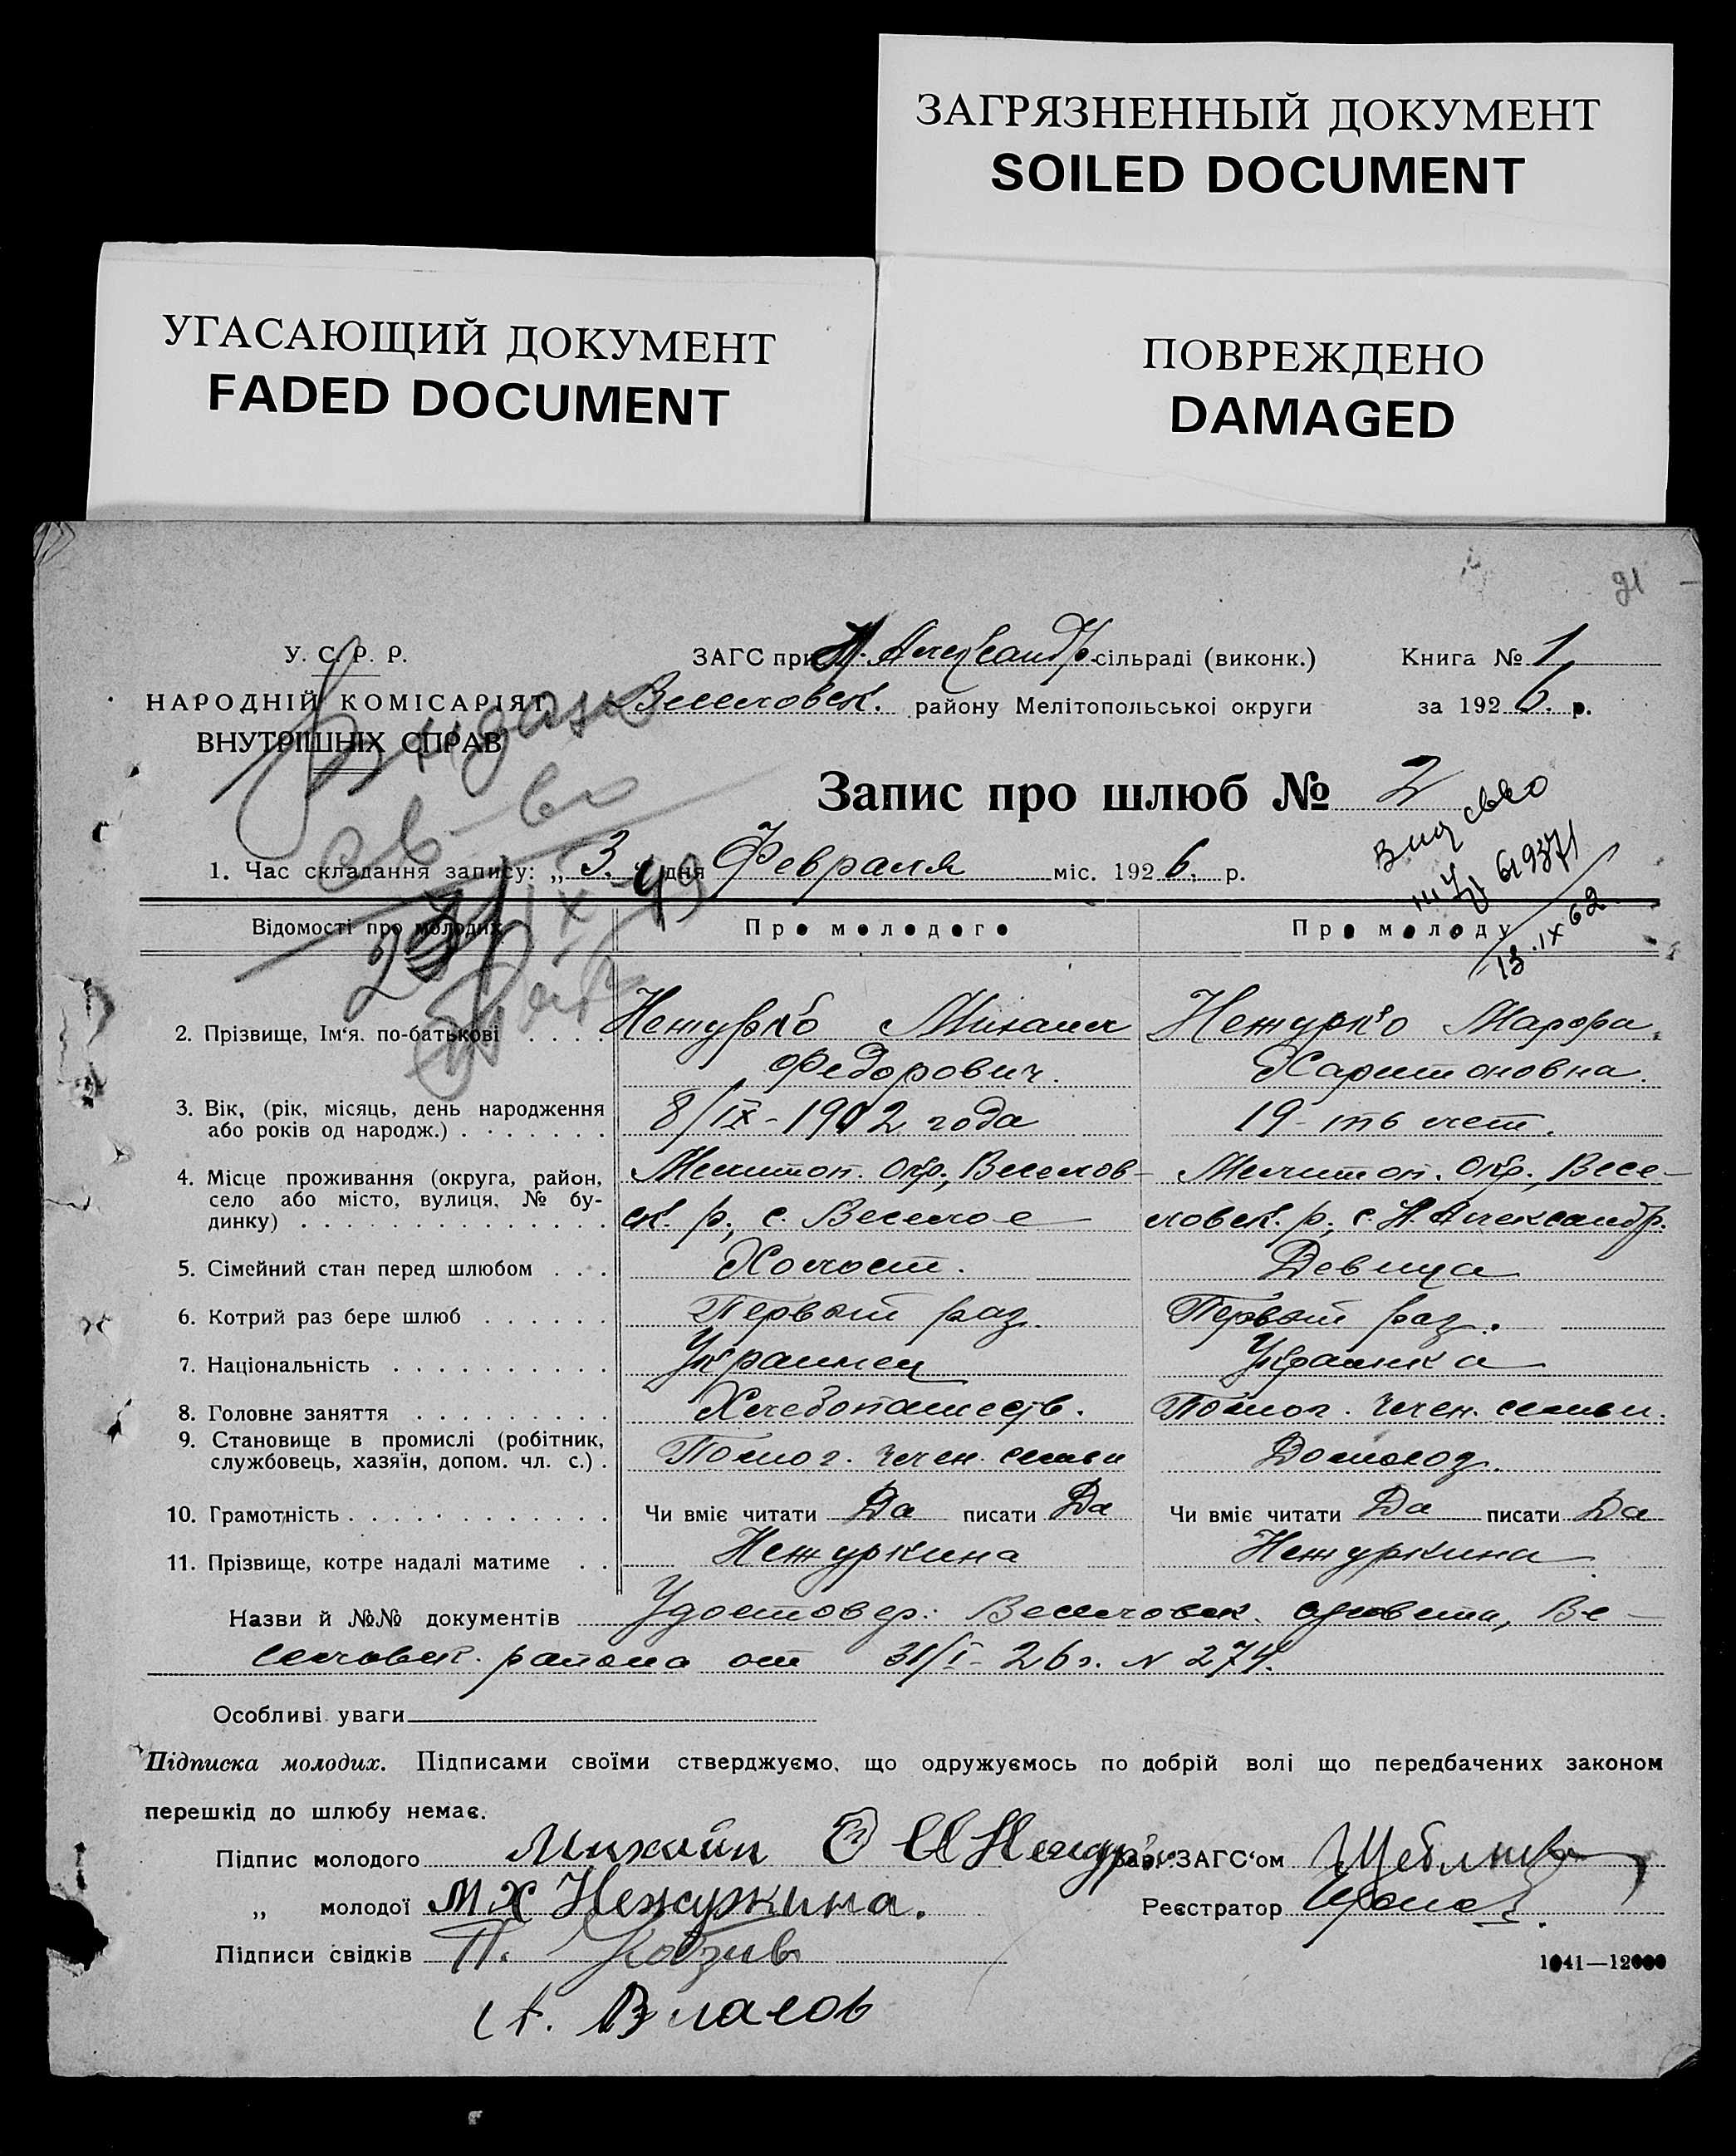 ЗАГРЯЗНЕННЫЙ ДОКУМЕНТ
SOILED DOCUMENT
УГАСАЮЩИЙ ДОКУМЕНТ
FADED DOCUMENT
ПОВРЕЖДЕНО
DAMAGED
21
У. С. Р. Р.
НАРОДНІЙ КОМІСАРІЯТ
ВНУТРІШНІХ СПРАВ
ЗАГС при Н. Александр. сільраді (виконк.) Книга № 1
Веселовск. району Мелітопольської округи за 1926. р.
Видано
св-во
23/IX 49
Запис про шлюб № 2
Вид св-во
61937
13.IX 62
1. Час складання запису: „3." дня Февраля міс. 1926. р.
Відомості про молодих Про молодого Про молоду
2. Прізвище, Ім'я. по-батькові Михаил Марфа
Федорович. Харитоновна.
3. Вік, (рік, місяць, день народження 8/IX-1902 года 19-ть лет.
або років од народж.)
4. Місце проживання (округа, район, Мелитоп. окр., Веселов- Мелитоп. окр., Весе-
село або місто, вулиця, № бу- ск. р., с. Веселое ловск. р., с. Н. Александр.
динку)
5. Сімейний стан перед шлюбом Холост. Девица
6. Котрий раз бере шлюб Первый раз. Первый раз.
7. Національність Украинец Украинка
8. Головне заняття Хлебопашеств. Помог. член. семьи.
9. Становище в промислі (робітник, Помог. член. семьи Домохоз.
службовець, хазяїн, допом. чл. с.)
10. Грамотність Чи вміє читати Да писати Да Чи вміє читати Да писати Да
11. Прізвище, котре надалі матиме Нежуркина Нежуркина
Назви й №№ документів Удостовер: Веселовск. с/совета, Ве-
селовск. района от 31/I-26г. N 274.
Особливі уваги
Підписка молодих. Підписами своїми стверджуємо, що одружуємось по добрій волі що передбачених законом
перешкід до шлюбу немає.
Підпис молодого Михаил Зав. ЗАГС'ом
„ молодої М Х Нежуркина. Реєстратор
Підписи свідків П. Кобзив 1041—12000
А. Власов